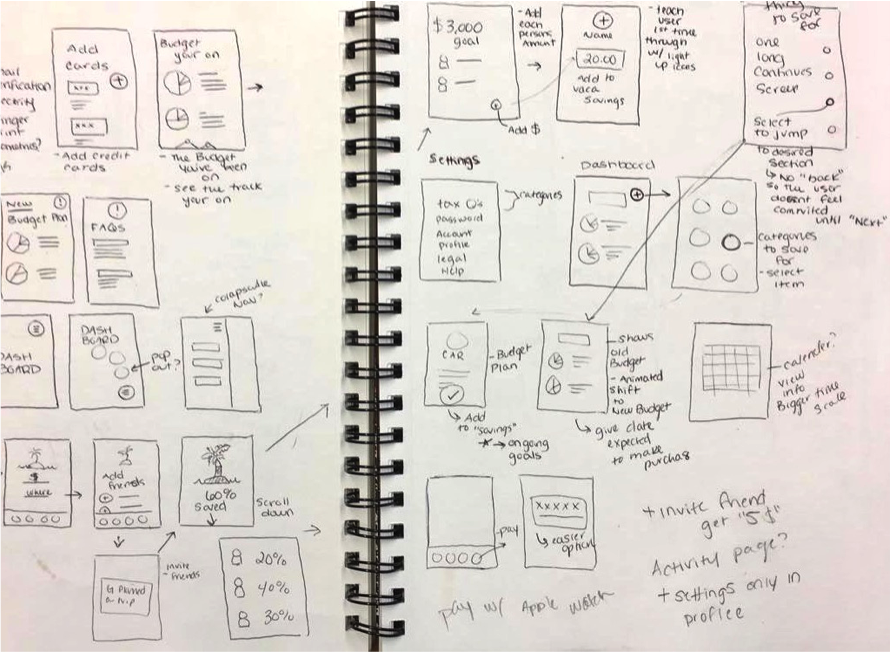 Add
cards
xxx
xxx
- Add credit
cards
Budget
your on
- The Budget
you've been
on
- see the track
your on
New
Budget Plan
FAQs
DASH
BOARD
DASH
BOARD
pop
out?
Nav?
$
where
Add
friends
60%
Saved
Scroll
down
Invite
friends
a trip
20%
40%
30%
$3,000
goal
- Add
each
persons
Amount
Add $
Name
20.00
Add to
vaca
Savings
- teach
user
1st time
through
w/ light
up icons
to save
for
one
long
Continues
Scroll
Select
to jump
to desired
section
↳ No "back"
so the user
doesnt feel
commited
until "Next"
Settings
tax Q's
password
Account
profile
legal
Help
categories
Dashboard
categories
to save
for
- select
item
CAR
- Budget
Plan
↳ Add
to "savings"
* → ongoing
goals
- shows
old
Budget
- Animated
shift
to
New Budget
↳ give date
expected
to make
purchas
- calender?
view
into
Bigger time
scale
pay
xxxxx
↳ easier
option
pay w/ Apple watch
+ invite friend
get "5$"
Activity page?
+ settings only in
profile